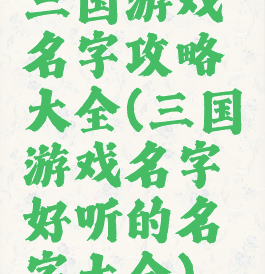 三国游戏
名字攻略
大全(三国
游戏名字
好听的名
字大全)